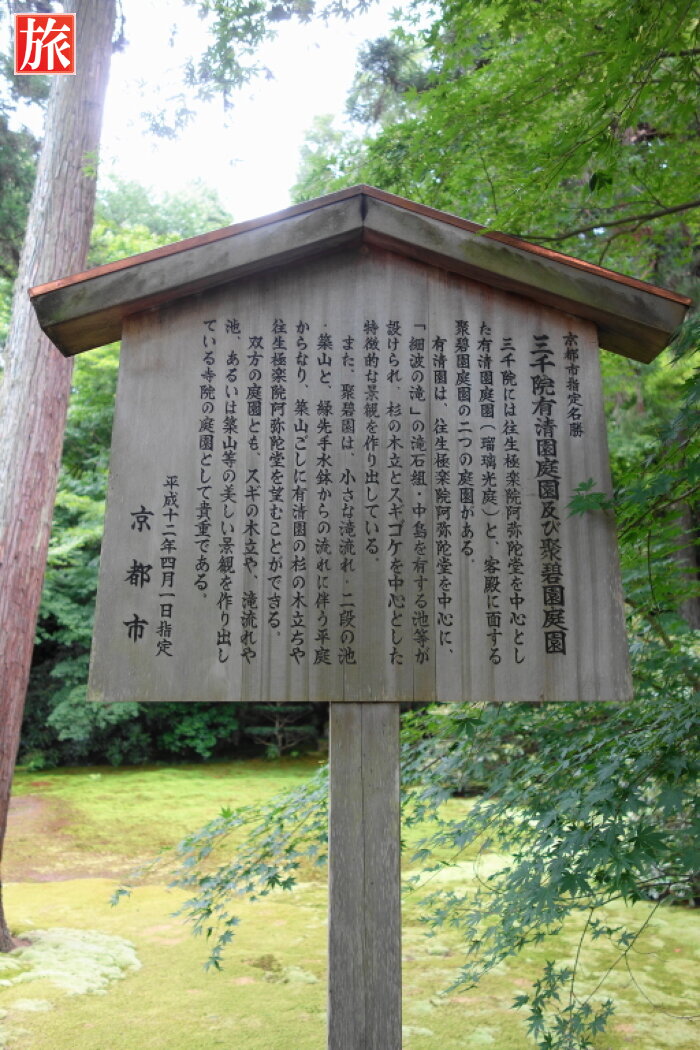 旅
京都市指定名勝
三千院有清園庭園及び聚碧園庭園
三千院には往生極楽院阿弥陀堂を中心とし
た有清園庭園(瑠璃光庭)と、客殿に面する
聚碧園庭園の二つの庭園がある。
有清園は、往生極楽院阿弥陀堂を中心に、
「細波の滝」の滝石組・中島を有する池等が
設けられ、杉の木立とスギゴケを中心とした
特徴的な景観を作り出している。
また、聚碧園は、小さな滝流れ・二段の池
・築山と、縁先手水鉢からの流れに伴う平庭
からなり、築山ごしに有清園の杉の木立ちや
往生極楽院阿弥陀堂を望むことができる。
双方の庭園とも、スギの木立や、滝流れや
池、あるいは築山等の美しい景観を作り出し
ている寺院の庭園として貴重である。
平成十二年四月一日指定
京都市